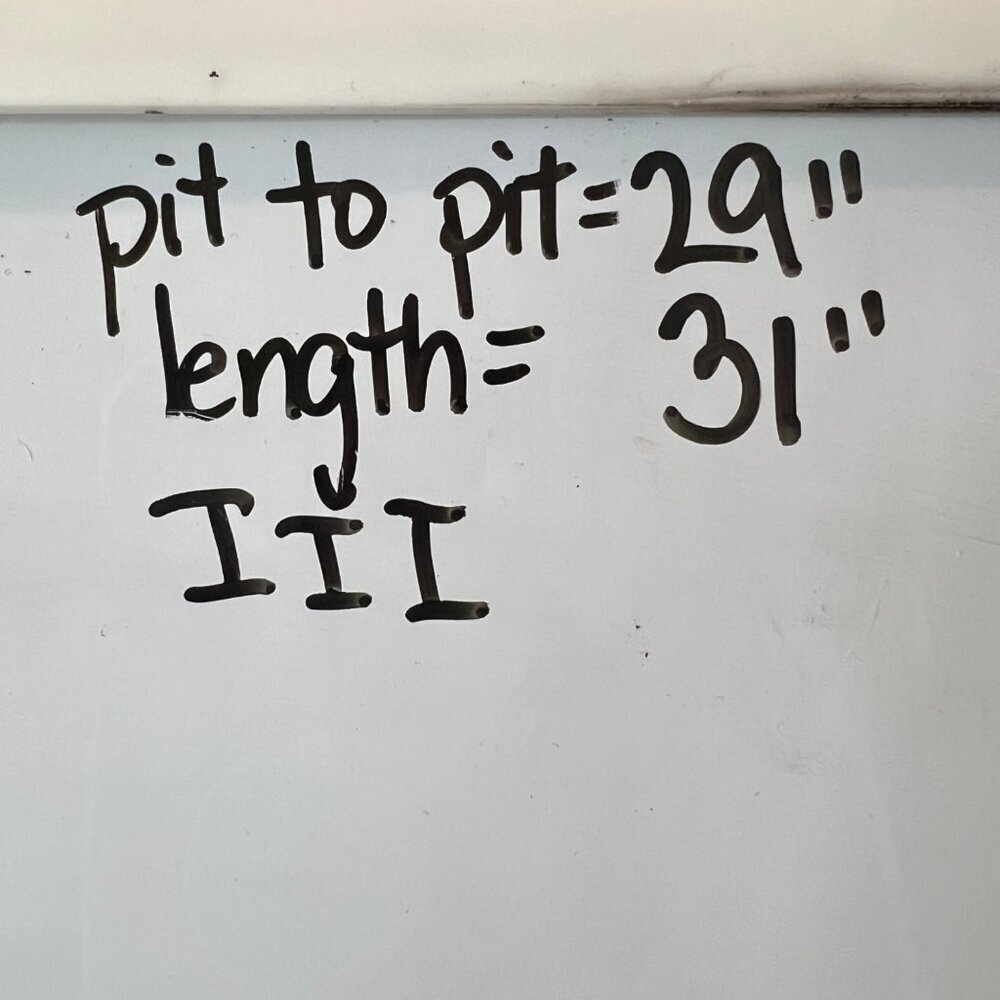 pit to pit=29"
length= 31"
III